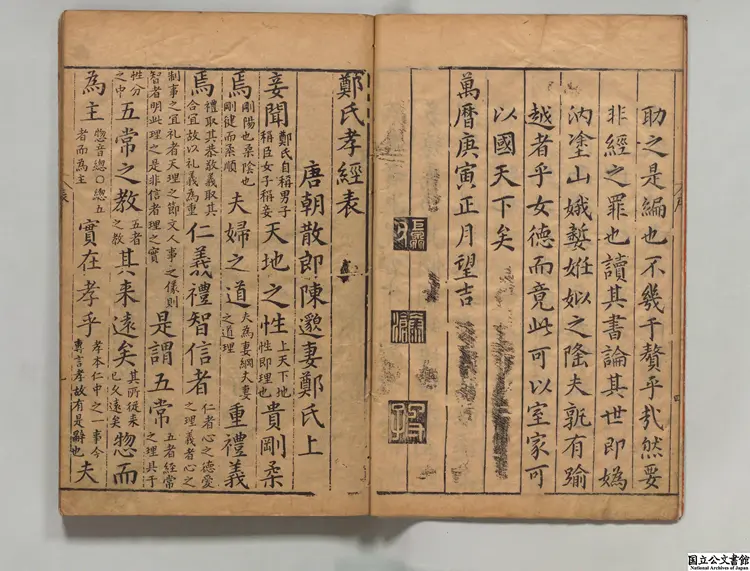 耴之是編也不幾于贅乎㢤然要
非經之罪也讀其書論其世即媯
汭塗山娥嫠姙姒之隆夫孰有踰
越者乎女德而竟此可以室家可
以國天下矣
萬曆庚寅正月望吉
鄭氏孝經表
唐朝散郎陳邈妻鄭氏上
妾聞鄭氏自稱男子稱臣女子稱妾天地之性上天下地性即理也貴剛柔
焉剛陽也柔陰也剛健而柔順夫婦之道夫為妻綱夫妻之道理重禮義
焉禮取其恭敬義取其合宜故以礼義為重仁義禮智信者仁者心之德愛之理義者心之
制事之宜礼者天理之節文人事之儀則智者明此理之是非信者理之實是謂五常五者經常之理具于
性分之中五常之教五者之教其来遠矣其所從来已久遠矣惣而
為主惣音總○惣五者而為主實在孝乎孝本仁中之一事今專言孝故有是辭也夫
国立公文書館
National Archives of Japan